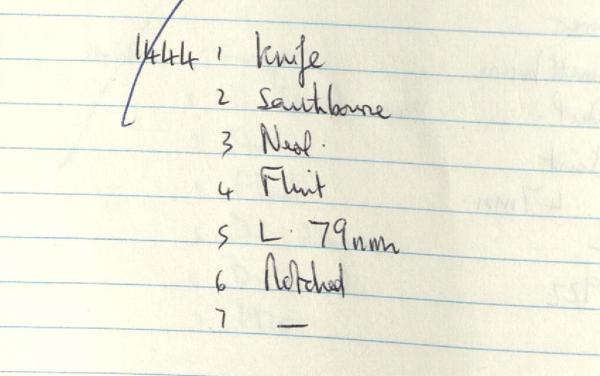 1444 1 Knife
2 Southbourne
3 Neol.
4 Flint
5 L. 79mm
6 Notched
7 —